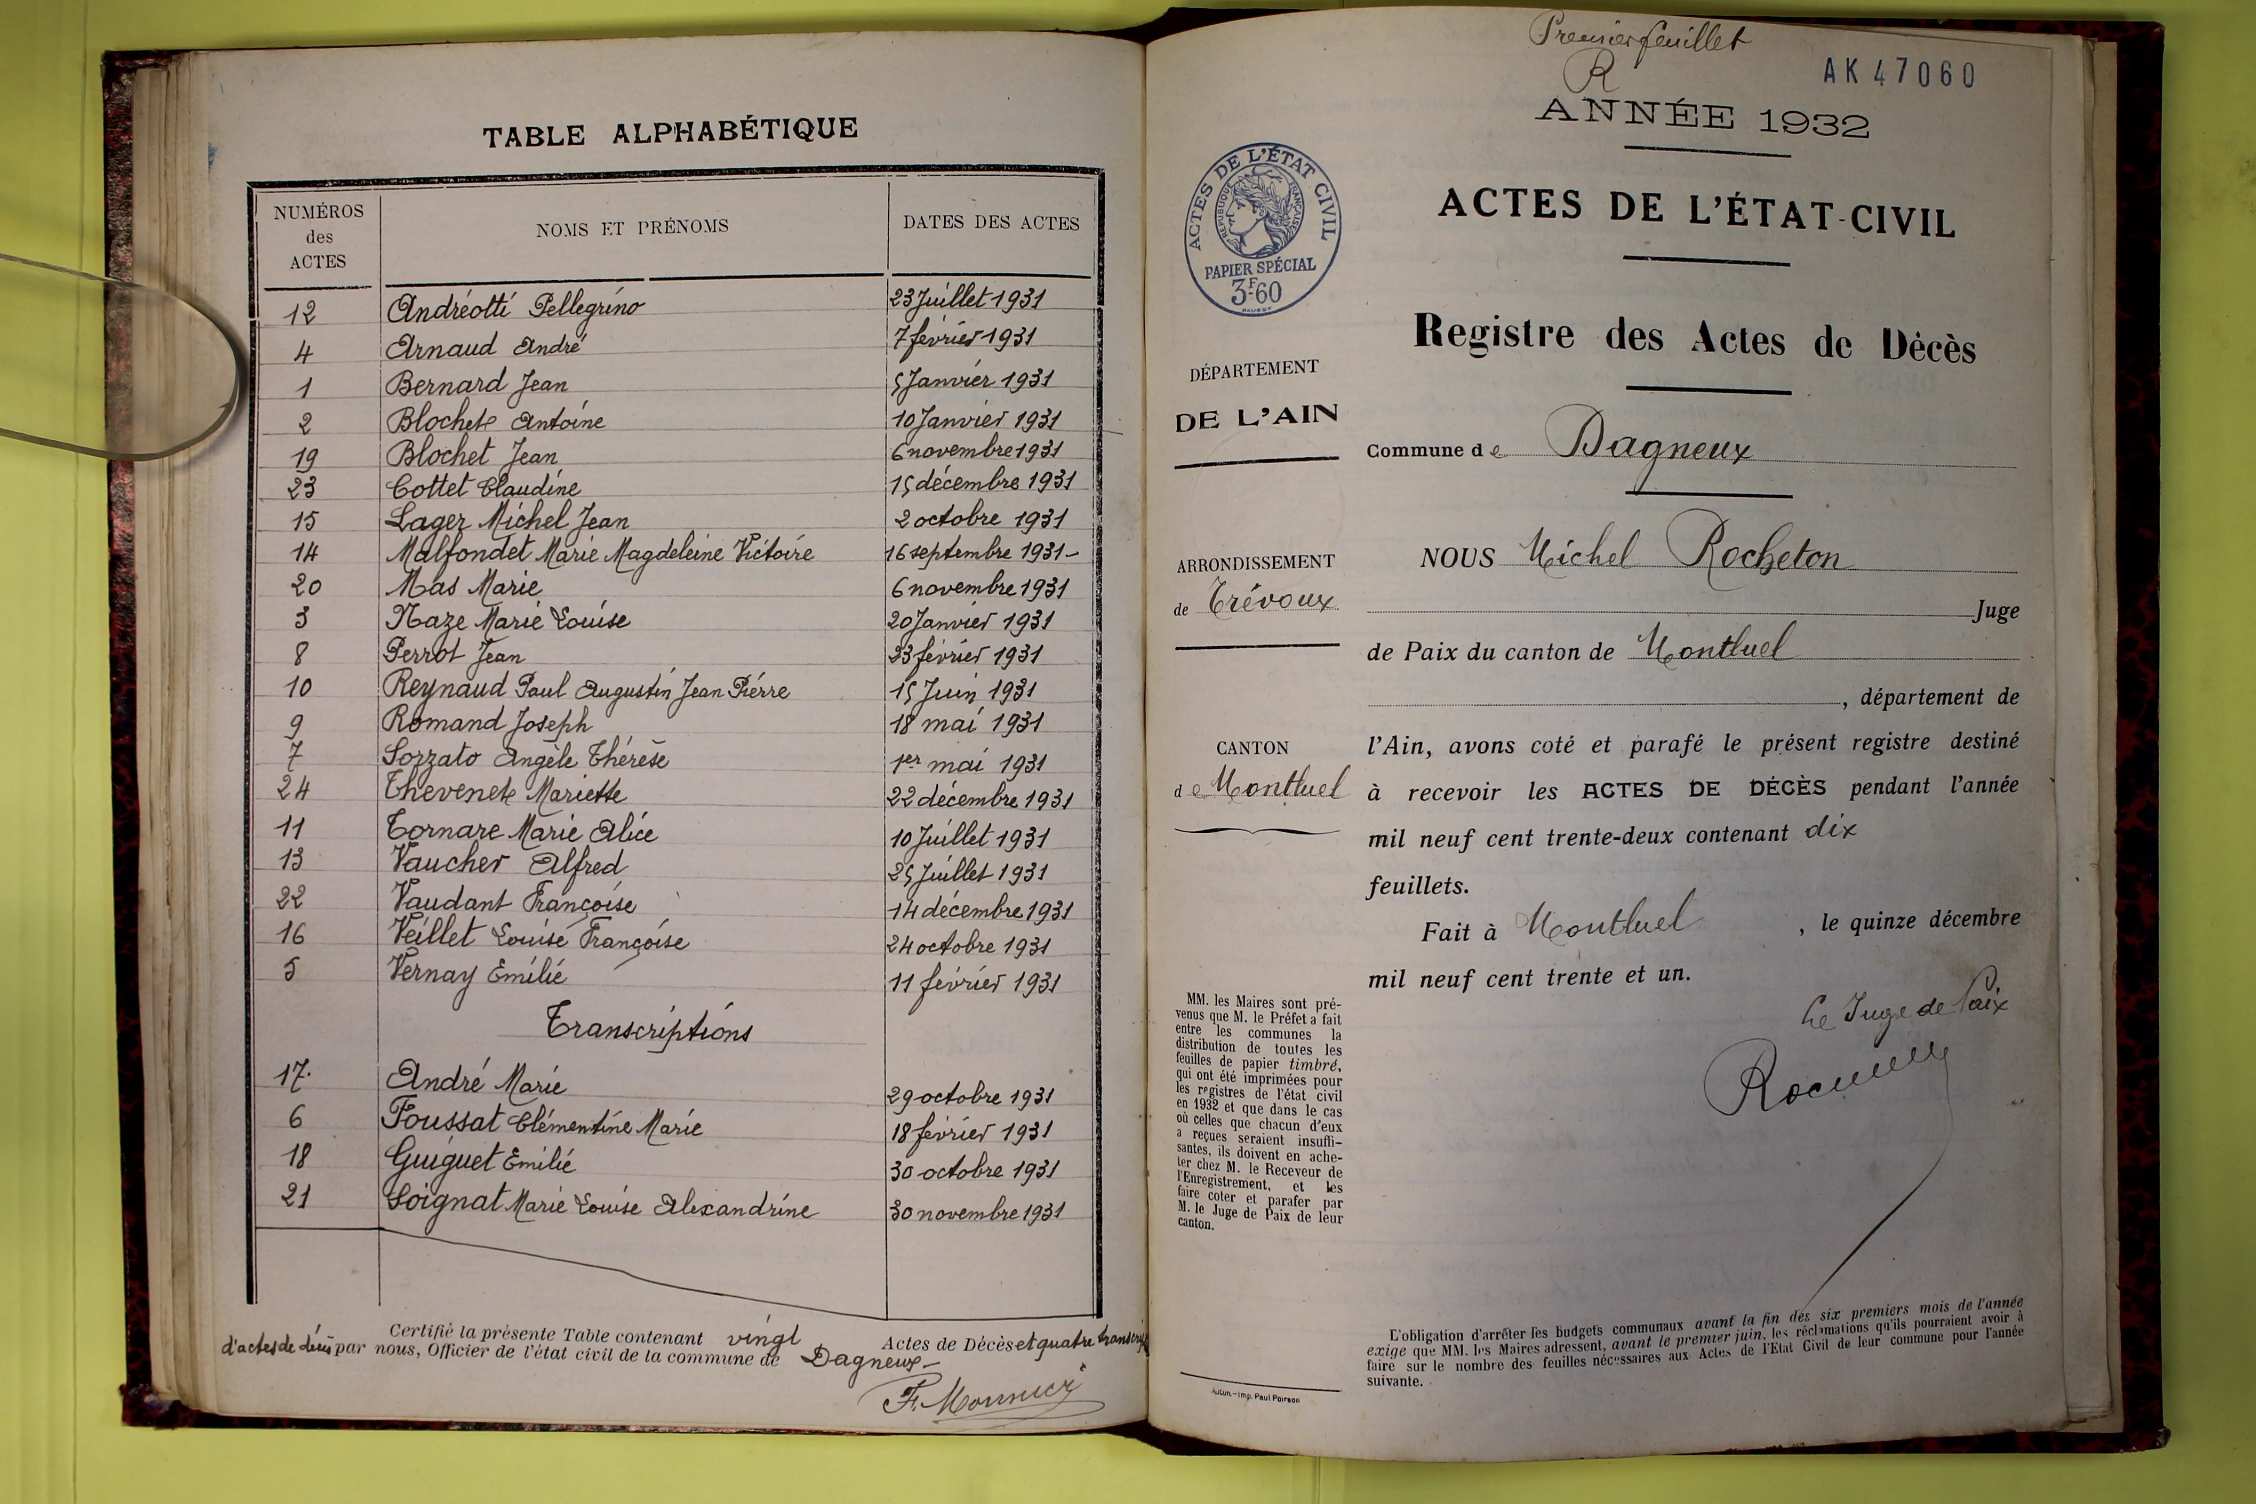 TABLE ALPHABÉTIQUE
NUMÉROS des ACTES NOMS ET PRÉNOMS DATES DES ACTES
12 Andréotti Pellegrino 23 Juillet 1931
4 Arnaud André 7 février 1931
1 Bernard Jean 5 Janvier 1931
2 Blochet Antoine 10 Janvier 1931
19 Blochet Jean 6 novembre 1931
23 Cottet Claudine 15 décembre 1931
15 Lager Michel Jean 2 octobre 1931
14 Malfondet Marie Magdeleine Victoire 16 septembre 1931-
20 Mas Marie 6 novembre 1931
3 Naze Marie Louise 20 Janvier 1931
8 Perrot Jean 23 février 1931
10 Reynaud Paul Augustin Jean Pierre 15 Juin 1931
9 Romand Joseph 18 mai 1931
7 Sozzato Angèle Thérèse 1er mai 1931
24 Thevenet Mariette 22 décembre 1931
11 Tornare Marie Alice 10 Juillet 1931
13 Vaucher Alfred 25 Juillet 1931
22 Vaudant Françoise 14 décembre 1931
16 Veillet Louise Françoise 24 octobre 1931
5 Vernay Emilie 11 février 1931
Transcriptions
17. André Marie 29 octobre 1931
6 Foussat Clémentine Marie 18 février 1931
18 Guiguet Emilie 30 octobre 1931
21 Soignat Marie Louise Alexandrine 30 novembre 1931
Certifié la présente Table contenant vingt Actes de Décès et quatre transcrip
d'actes de décès par nous, Officier de l'état civil de la commune de Dagneux-
Premier feuillet
R
AK 47060
ANNÉE 1932
ACTES DE L'ÉTAT-CIVIL
Registre des Actes de Décès
Commune de Dagneux
NOUS Michel Rocheton
Juge
de Paix du canton de Montluel
, département de
l'Ain, avons coté et parafé le présent registre destiné
à recevoir les ACTES DE DÉCÈS pendant l'année
mil neuf cent trente-deux contenant dix
feuillets.
Fait à Montluel, le quinze décembre
mil neuf cent trente et un.
Le Juge de Paix
ACTES DE L'ÉTAT CIVIL
RÉPUBLIQUE FRANÇAISE
PAPIER SPÉCIAL
3F60
DÉPARTEMENT
DE L'AIN
ARRONDISSEMENT
de Trévoux
CANTON
de Montluel
MM. les Maires sont pré-
venus que M. le Préfet a fait
entre les communes la
distribution de toutes les
feuilles de papier timbré,
qui ont été imprimées pour
les registres de l'état civil
en 1932 et que dans le cas
où celles que chacun d'eux
a reçues seraient insuffi-
santes, ils doivent en ache-
ter chez M. le Receveur de
l'Enregistrement, et les
faire coter et parafer par
M. le Juge de Paix de leur
canton.
Autun.—Imp. Paul Poirson
L'obligation d'arrêter les budgets communaux avant la fin des six premiers mois de l'année
exige que MM. les Maires adressent, avant le premier juin, les réclamations qu'ils pourraient avoir à
faire sur le nombre des feuilles nécessaires aux Actes de l'Etat Civil de leur commune pour l'année
suivante.